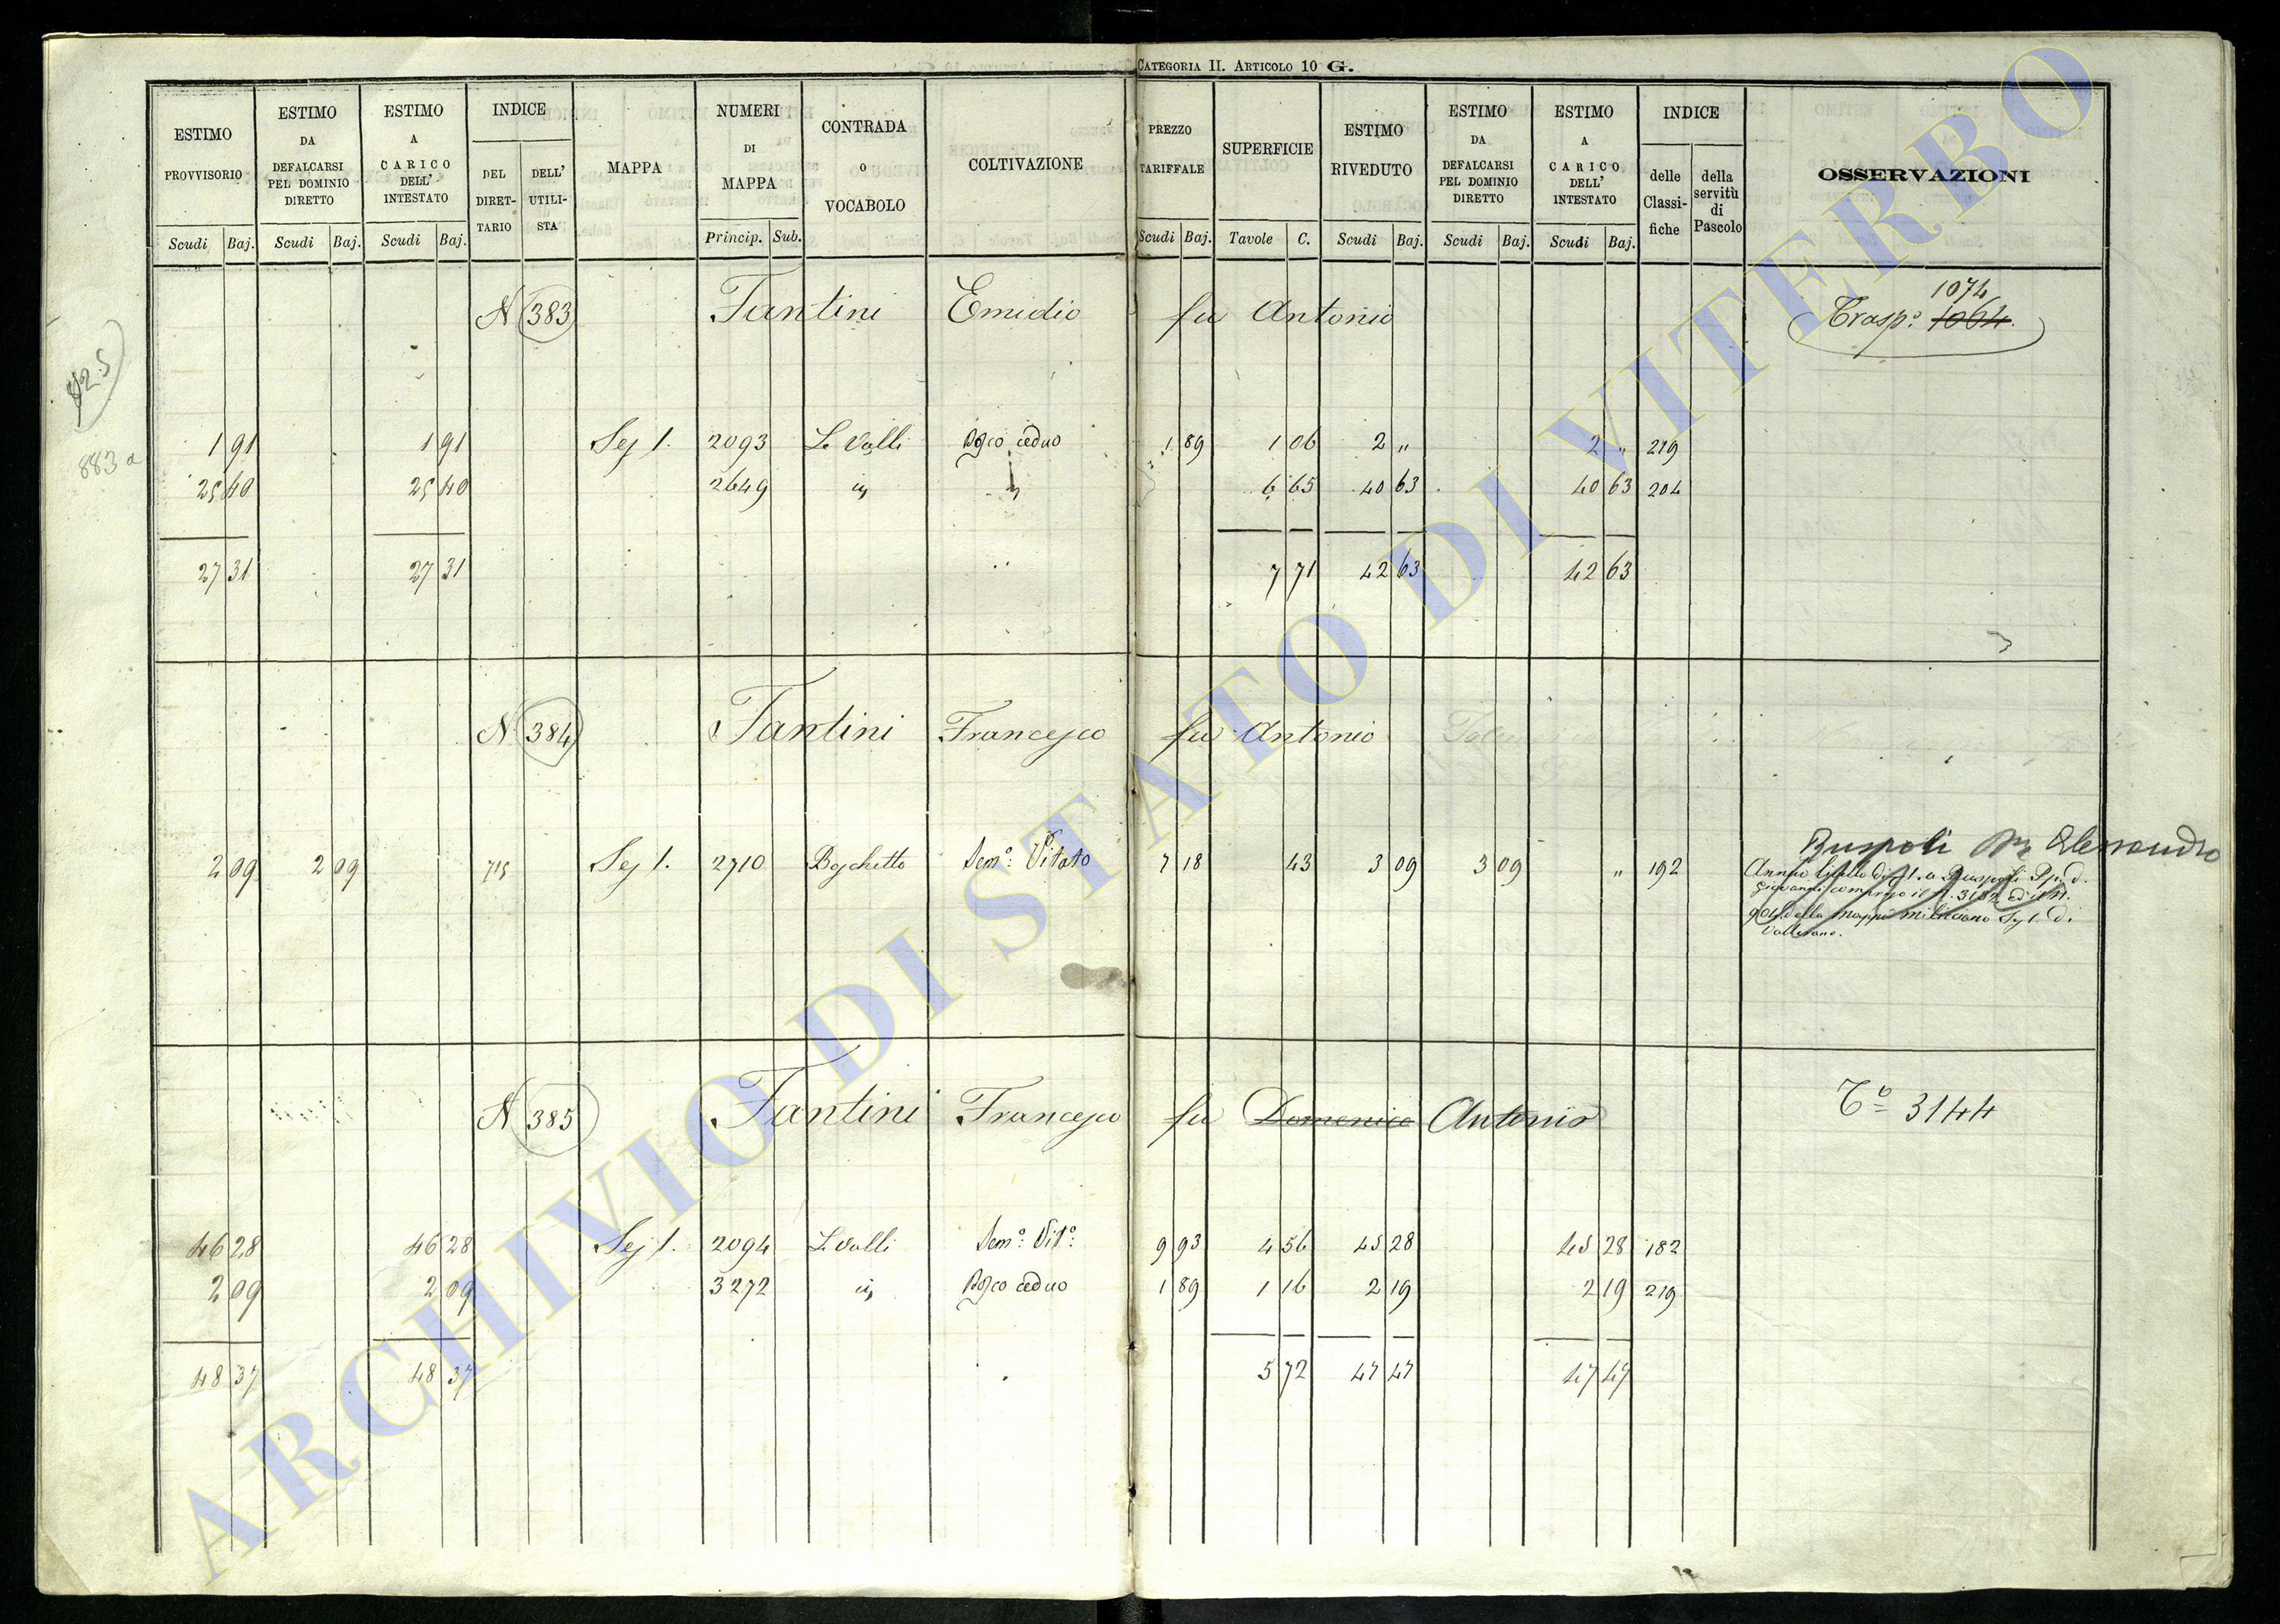 CATEGORIA II. ARTICOLO 10 G.
ESTIMO PROVVISORIO
ESTIMO DA DEFALCARSI PEL DOMINIO DIRETTO
ESTIMO A CARICO DELL' INTESTATO
INDICE
DEL DIRETTARIO
DELL' UTILISTA
MAPPA
NUMERI DI MAPPA
CONTRADA O VOCABOLO
COLTIVAZIONE
PREZZO TARIFFALE
SUPERFICIE
ESTIMO RIVEDUTO
ESTIMO DA DEFALCARSI PEL DOMINIO DIRETTO
ESTIMO A CARICO DELL' INTESTATO
INDICE
delle Classifiche
della servitù di Pascolo
OSSERVAZIONI
Scudi Baj. Scudi Baj. Scudi Baj. Princip. Sub. Scudi Baj. Tavole C. Scudi Baj. Scudi Baj. Scudi Baj.
1074
N 383 Tantini Emidio fu Antonio Trasp: 1064.
1 91 1 91 Sez 1. 2093 Le Valli Bosco ceduo 1 89 1 06 2 " 2 " 219
883
25 40 25 40 2649 6 65 40 63 40 63 204
27 31 27 31 7 71 42 63 42 63
N 384 Tantini Francesco fu Antonio
Ruspoli Alessandro
2 09 2 09 715 Sez 1. 2710 Boschetto Sem: Vitato 7 18 43 3 09 3 09 " 192
Annuo
della mappa
Vallerano.
N 385 Tantini Francesco fu Domenico Antonio To 3144
46 28 46 28 Sez 1. 2094 Le Valli Semo: Vito: 9 93 4 56 45 28 45 28 182
2 09 2 09 3272 Bosco ceduo 1 89 1 16 2 19 2 19 219
48 37 48 37 5 72 47 47 47 47
ARCHIVIO DI STATO DI VITERBO